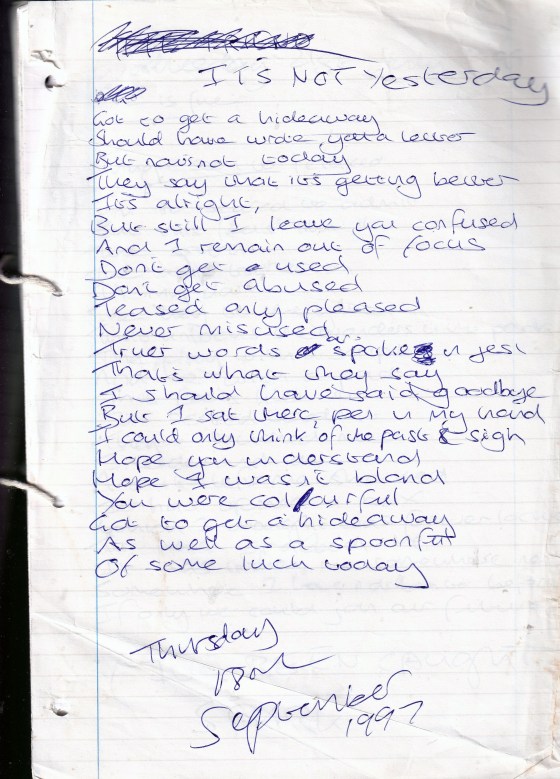 IT'S NOT Yesterday
Got to get a hideaway
Should have wrote you a letter
But now's not today
They say that it's getting better
It's alright,
But still I leave you confused
And I remain out of focus
Don't get used
Don't get abused
Teased only pleased
Never misused
Truer words are spoke in jest
That's what they say
I should have said goodbye
But I sat there, pen in my hand
I could only think of the past & sigh
Hope you understand
Hope I wasn't bland
You were colourful
Got to get a hideaway
As well as a spoonful
Of some luck today
Thursday
18th
September
1997